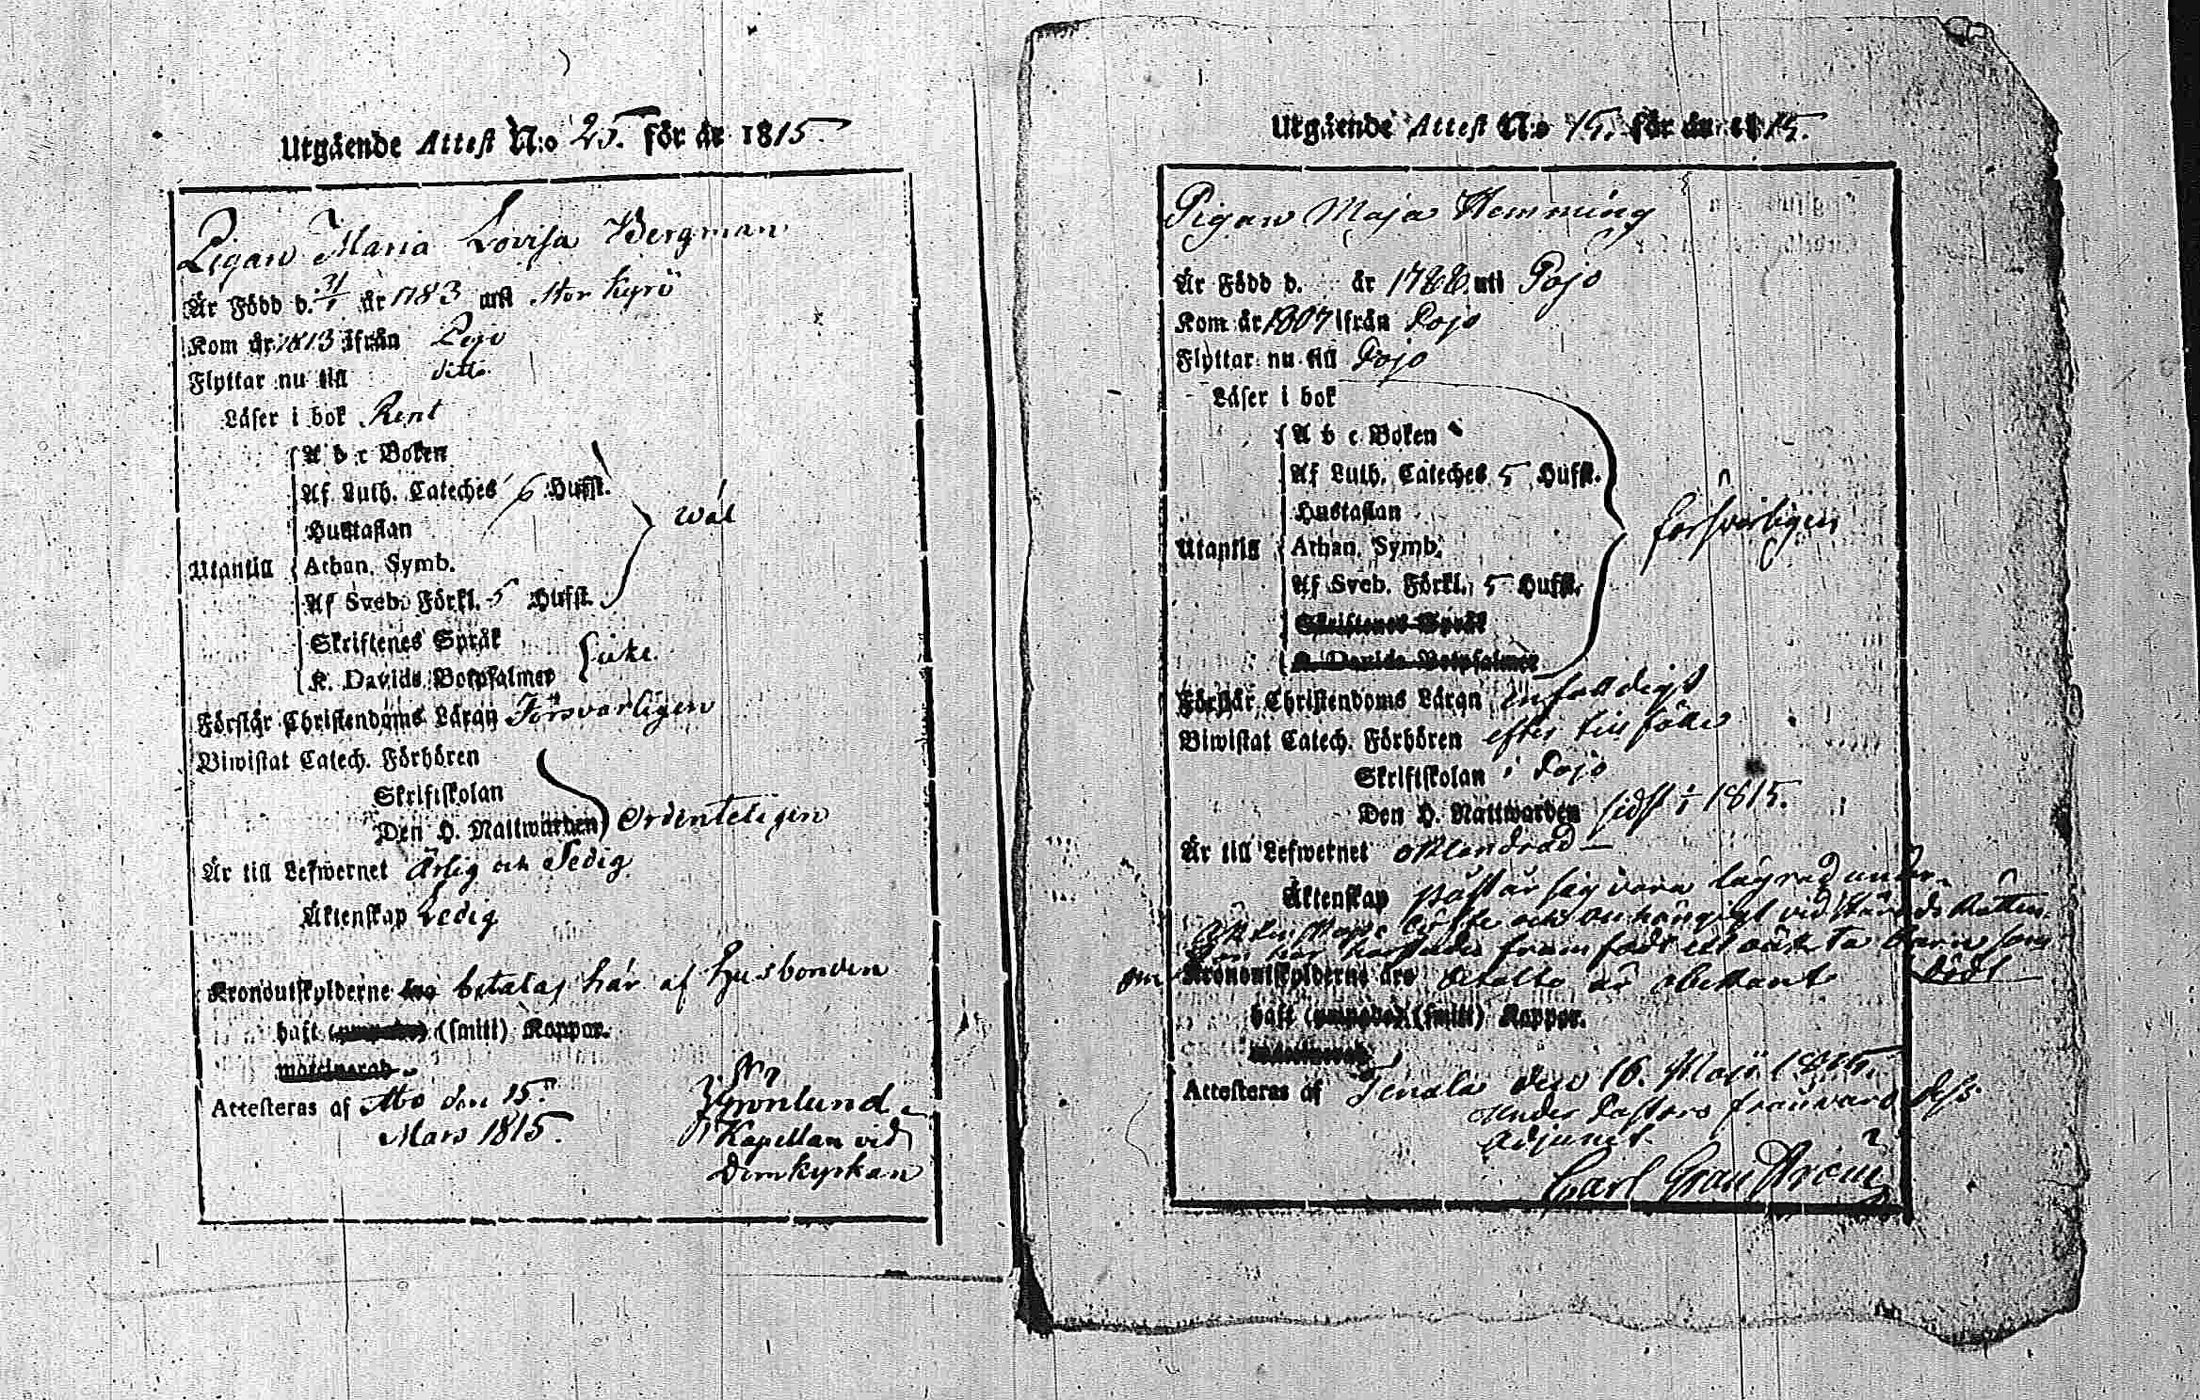 Utgående Attest N:o 25. för år 1815.
Pigan Maria Lovisa Bergman
Är Född d. 31/1 år 1783 uti Stor Kyrö
Kom år 1813 ifrån Pojo
Flyttar nu till ditto
Läser i bok Rent
A b c Boken
Af Luth. Cateches 6 Hufst.
Hustaflan
wäl
Utantill
Athan. Symb.
Af Sveb. Förkl. 5 Hufst.
Skriftenes Språk
K. Davids Botpsalmer
icke
Förstår Christendoms Läran Försvarligen
Biwistat Catech. Förhören
Skriftskolan
Den H. Nattwarden Ordenteligen
Är till Lefwernet Ärlig och Sedig
Äktenskap Ledig
Kronoutskylderne betalas här af husbonden
haft (smitt) Koppor.
Attesteras af Åbo den 15.
Mars 1815.
Grönlund
Kapellan vid
Domkyrkan
Utgående Attest N:o 15. för år 1815.
Pigan Maja Hemming
Är Född d. år 1788 uti Pojo
Kom år 1807 ifrån Pojo
Flyttar nu till Pojo
Läser i bok
A b c Boken
Af Luth. Cateches 5 Hufst.
Hustaflan
försvarligen
Utantill
Athan. Symb.
Af Sveb. Förkl. 5 Hufst.
Skriftenes Språk
K. Davids Botpsalmer
Förstår Christendoms Läran enfaldigt
Biwistat Catech. Förhören efter tillfälle
Skriftskolan i Pojo
Den H. Nattwarden sidst 1815.
Är till Lefwernet oklandrad
Äktenskap påstår sig vara lägrad under
Äktenskaps löfte och anhängigt vid Härads Rätten.
hon har framfödt ett oäkta barn som
Kronoutskylderne äro betalte är obekant dödt
haft (smitt) Koppor.
Attesteras af Tenala den 16. Maji 1815.
under Pastors frånvaro
Adjunct.
Carl